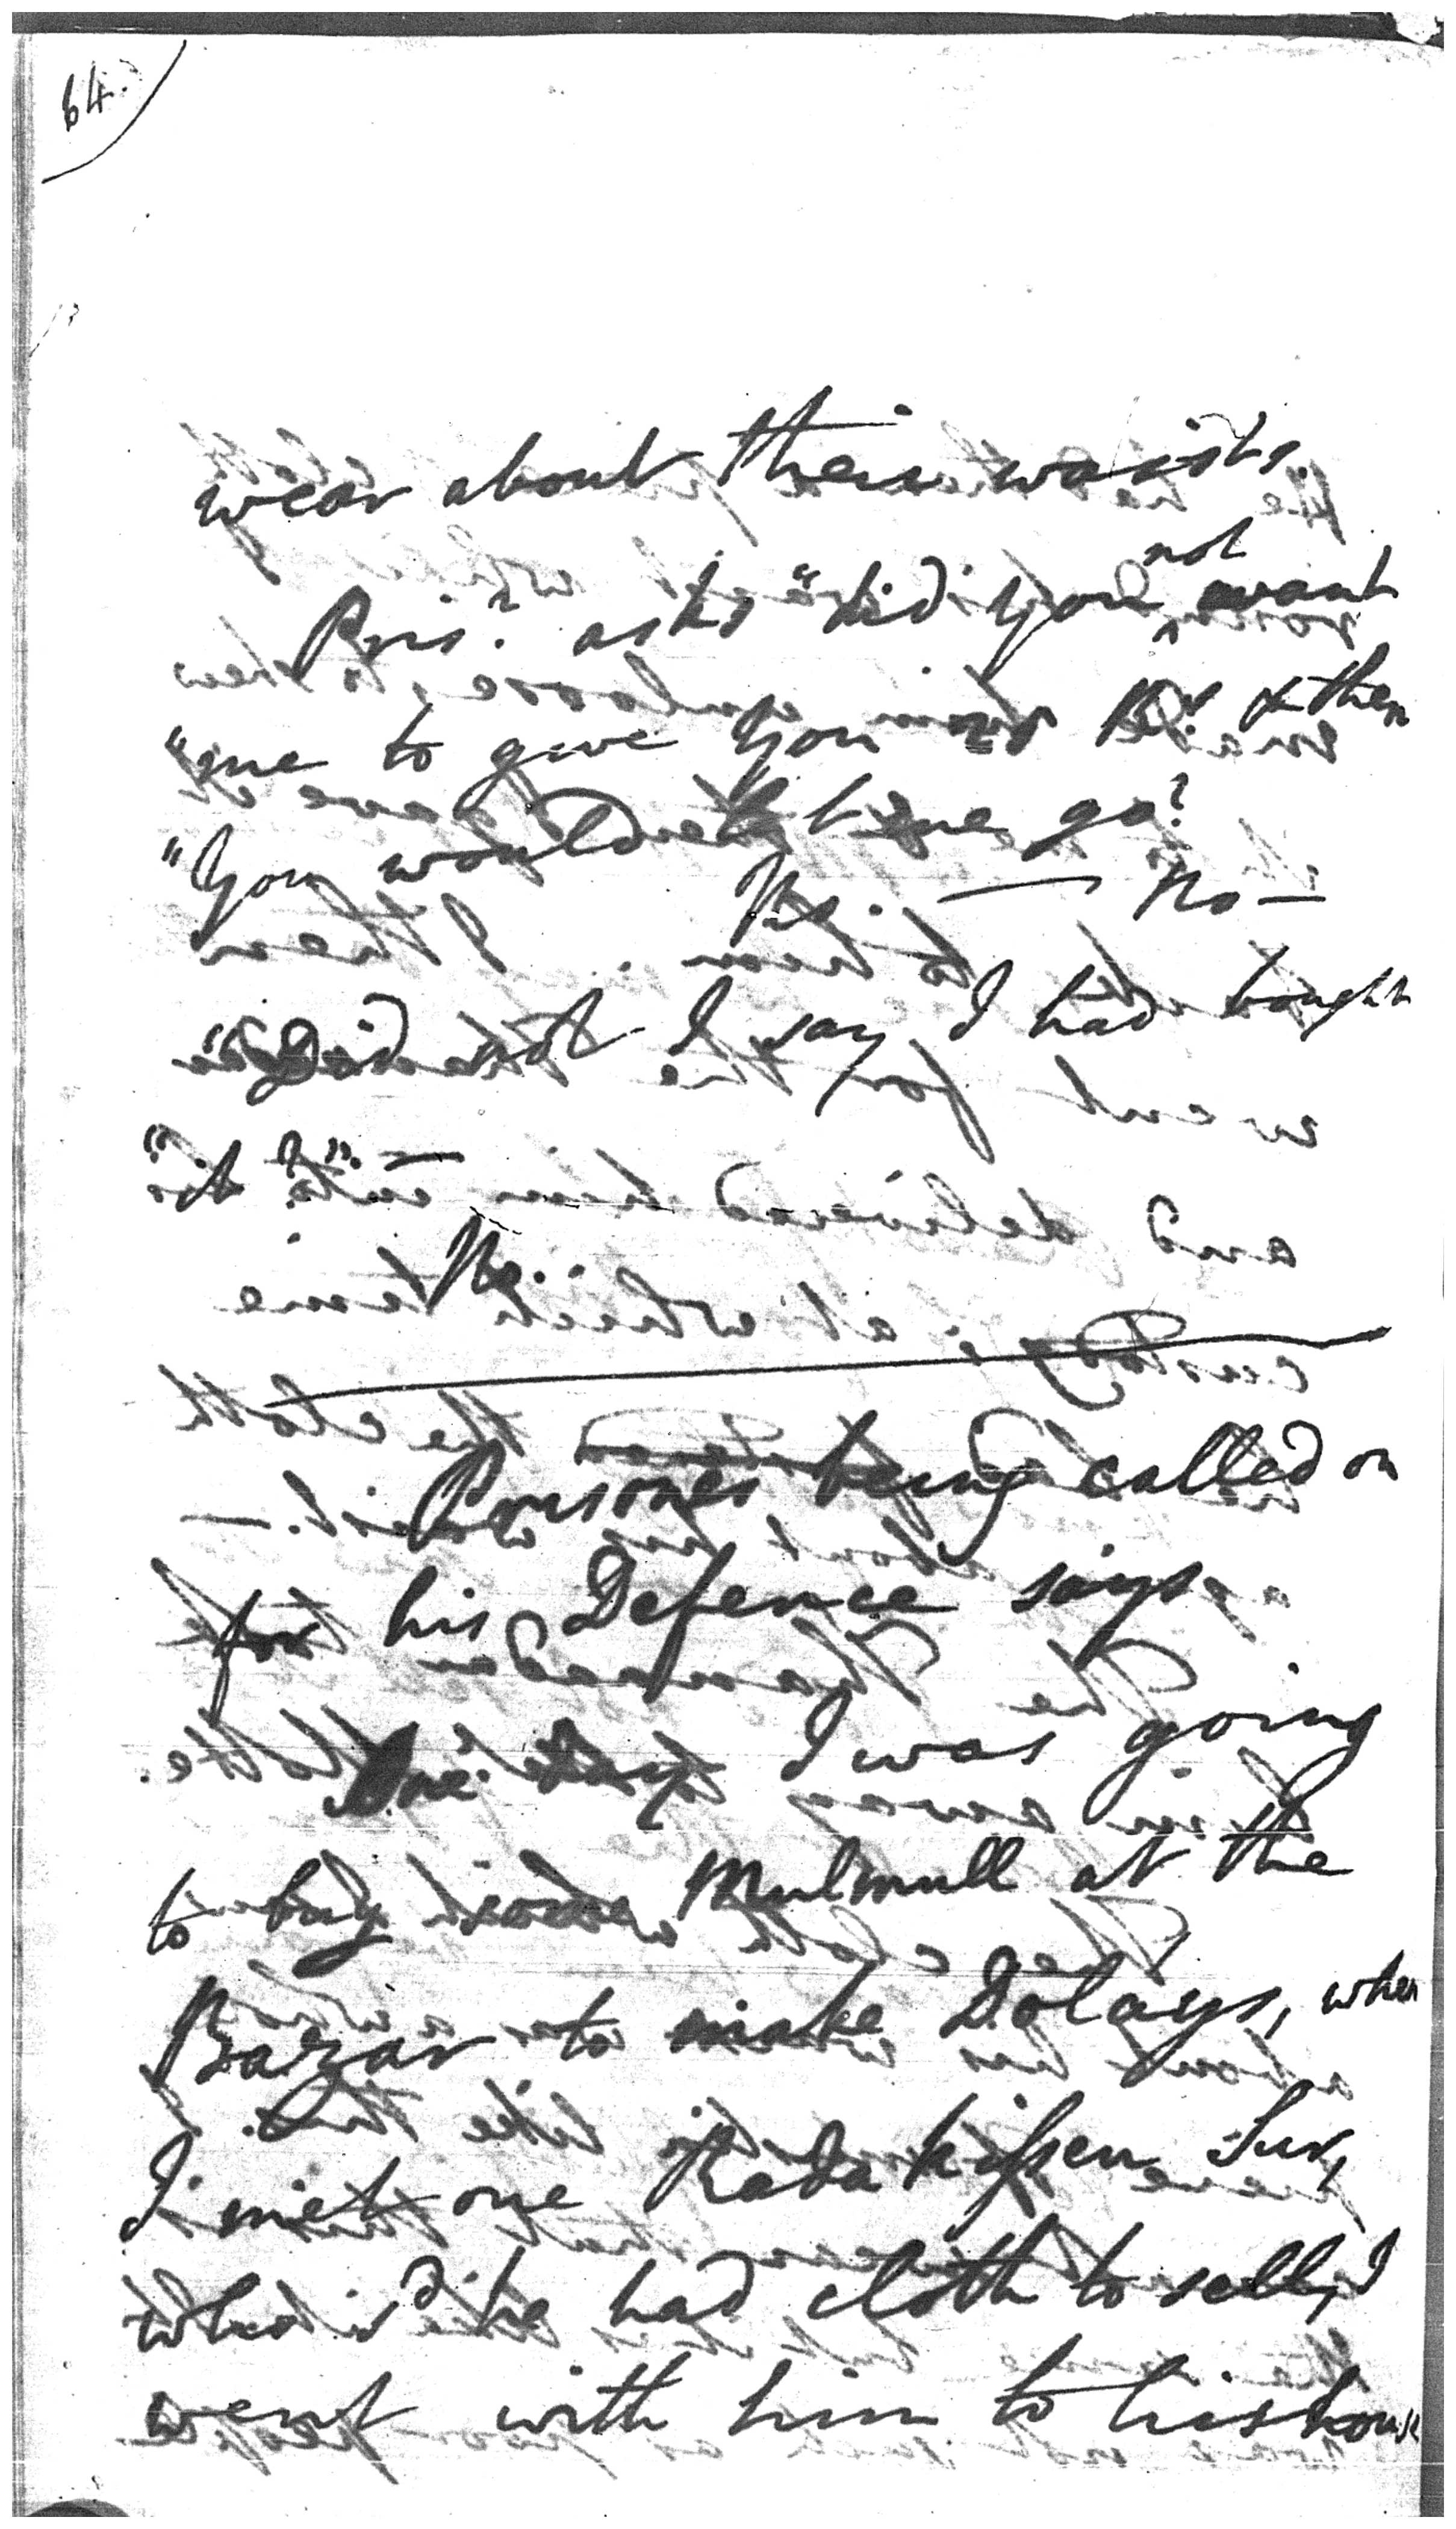 64.
wear about their waists.
Pris.r asks "did you not want
"me to give you Rs & then
"you would let me go?
Ns. — No —
"Did not I say I had bought
"it?" —
No.
Prisoner being called on
for his Defence says
One day I was going
to buy some Mulmull at the
Bazar to make Dolays, when
I met one Rada Kissen Sur,
who s.d he had cloth to sell, I
went with him to his house